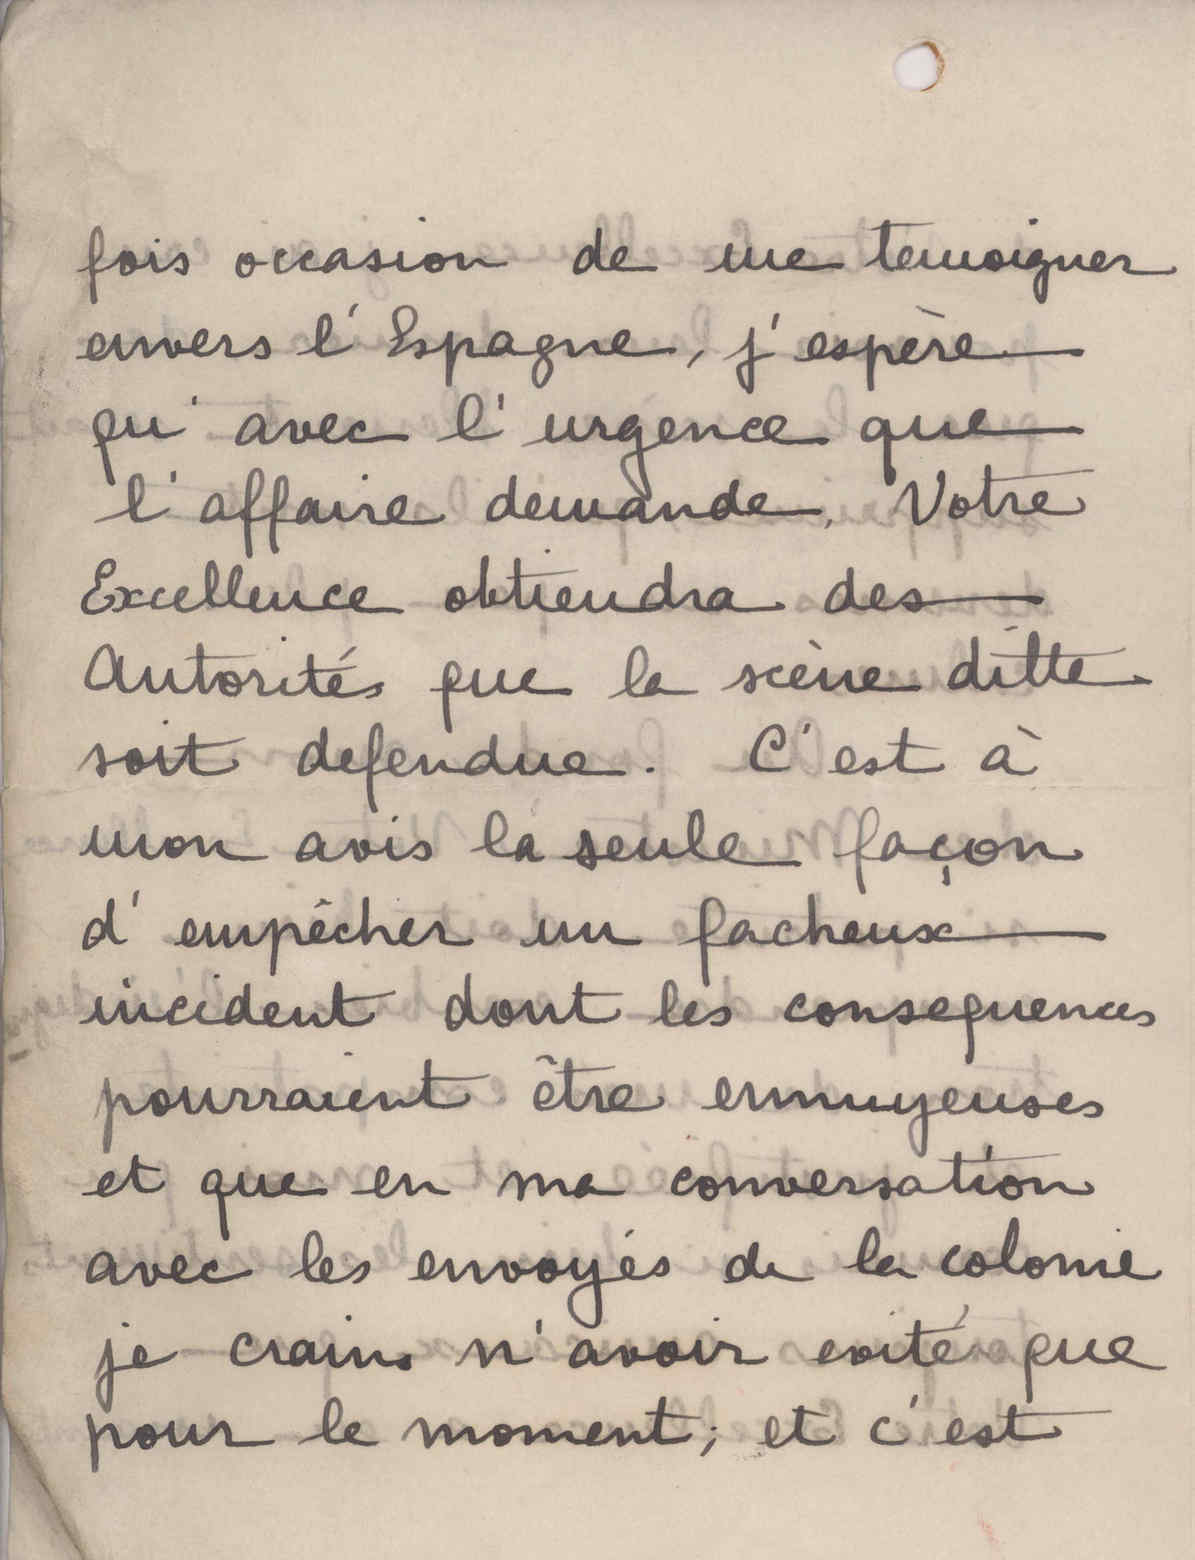 fois occasion de me temoigner
envers l'Espagne, j'espère
qu'avec l'urgence que
l'affaire demande, Votre
Excellence obtiendra des
Autorités que la scène ditte
soit defendue. C'est à
mon avis la seule façon
d'empêcher un facheux
incident dont les consequences
pourraient être ennuyeuses
et que en ma conversation
avec les envoyés de la colonie
je crains n'avoir evité que
pour le moment; et c'est